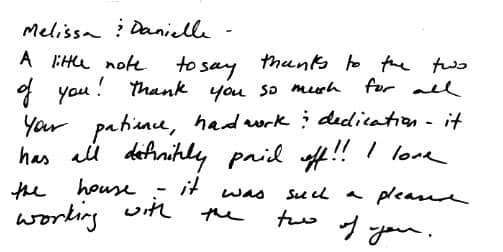 Melissa & Danielle -
A little note to say thanks to the two
of you! Thank you so much for all
your patience, hard work & dedication - it
has all definitely paid off!! I love
the house - it was such a pleasure
working with the two of you.